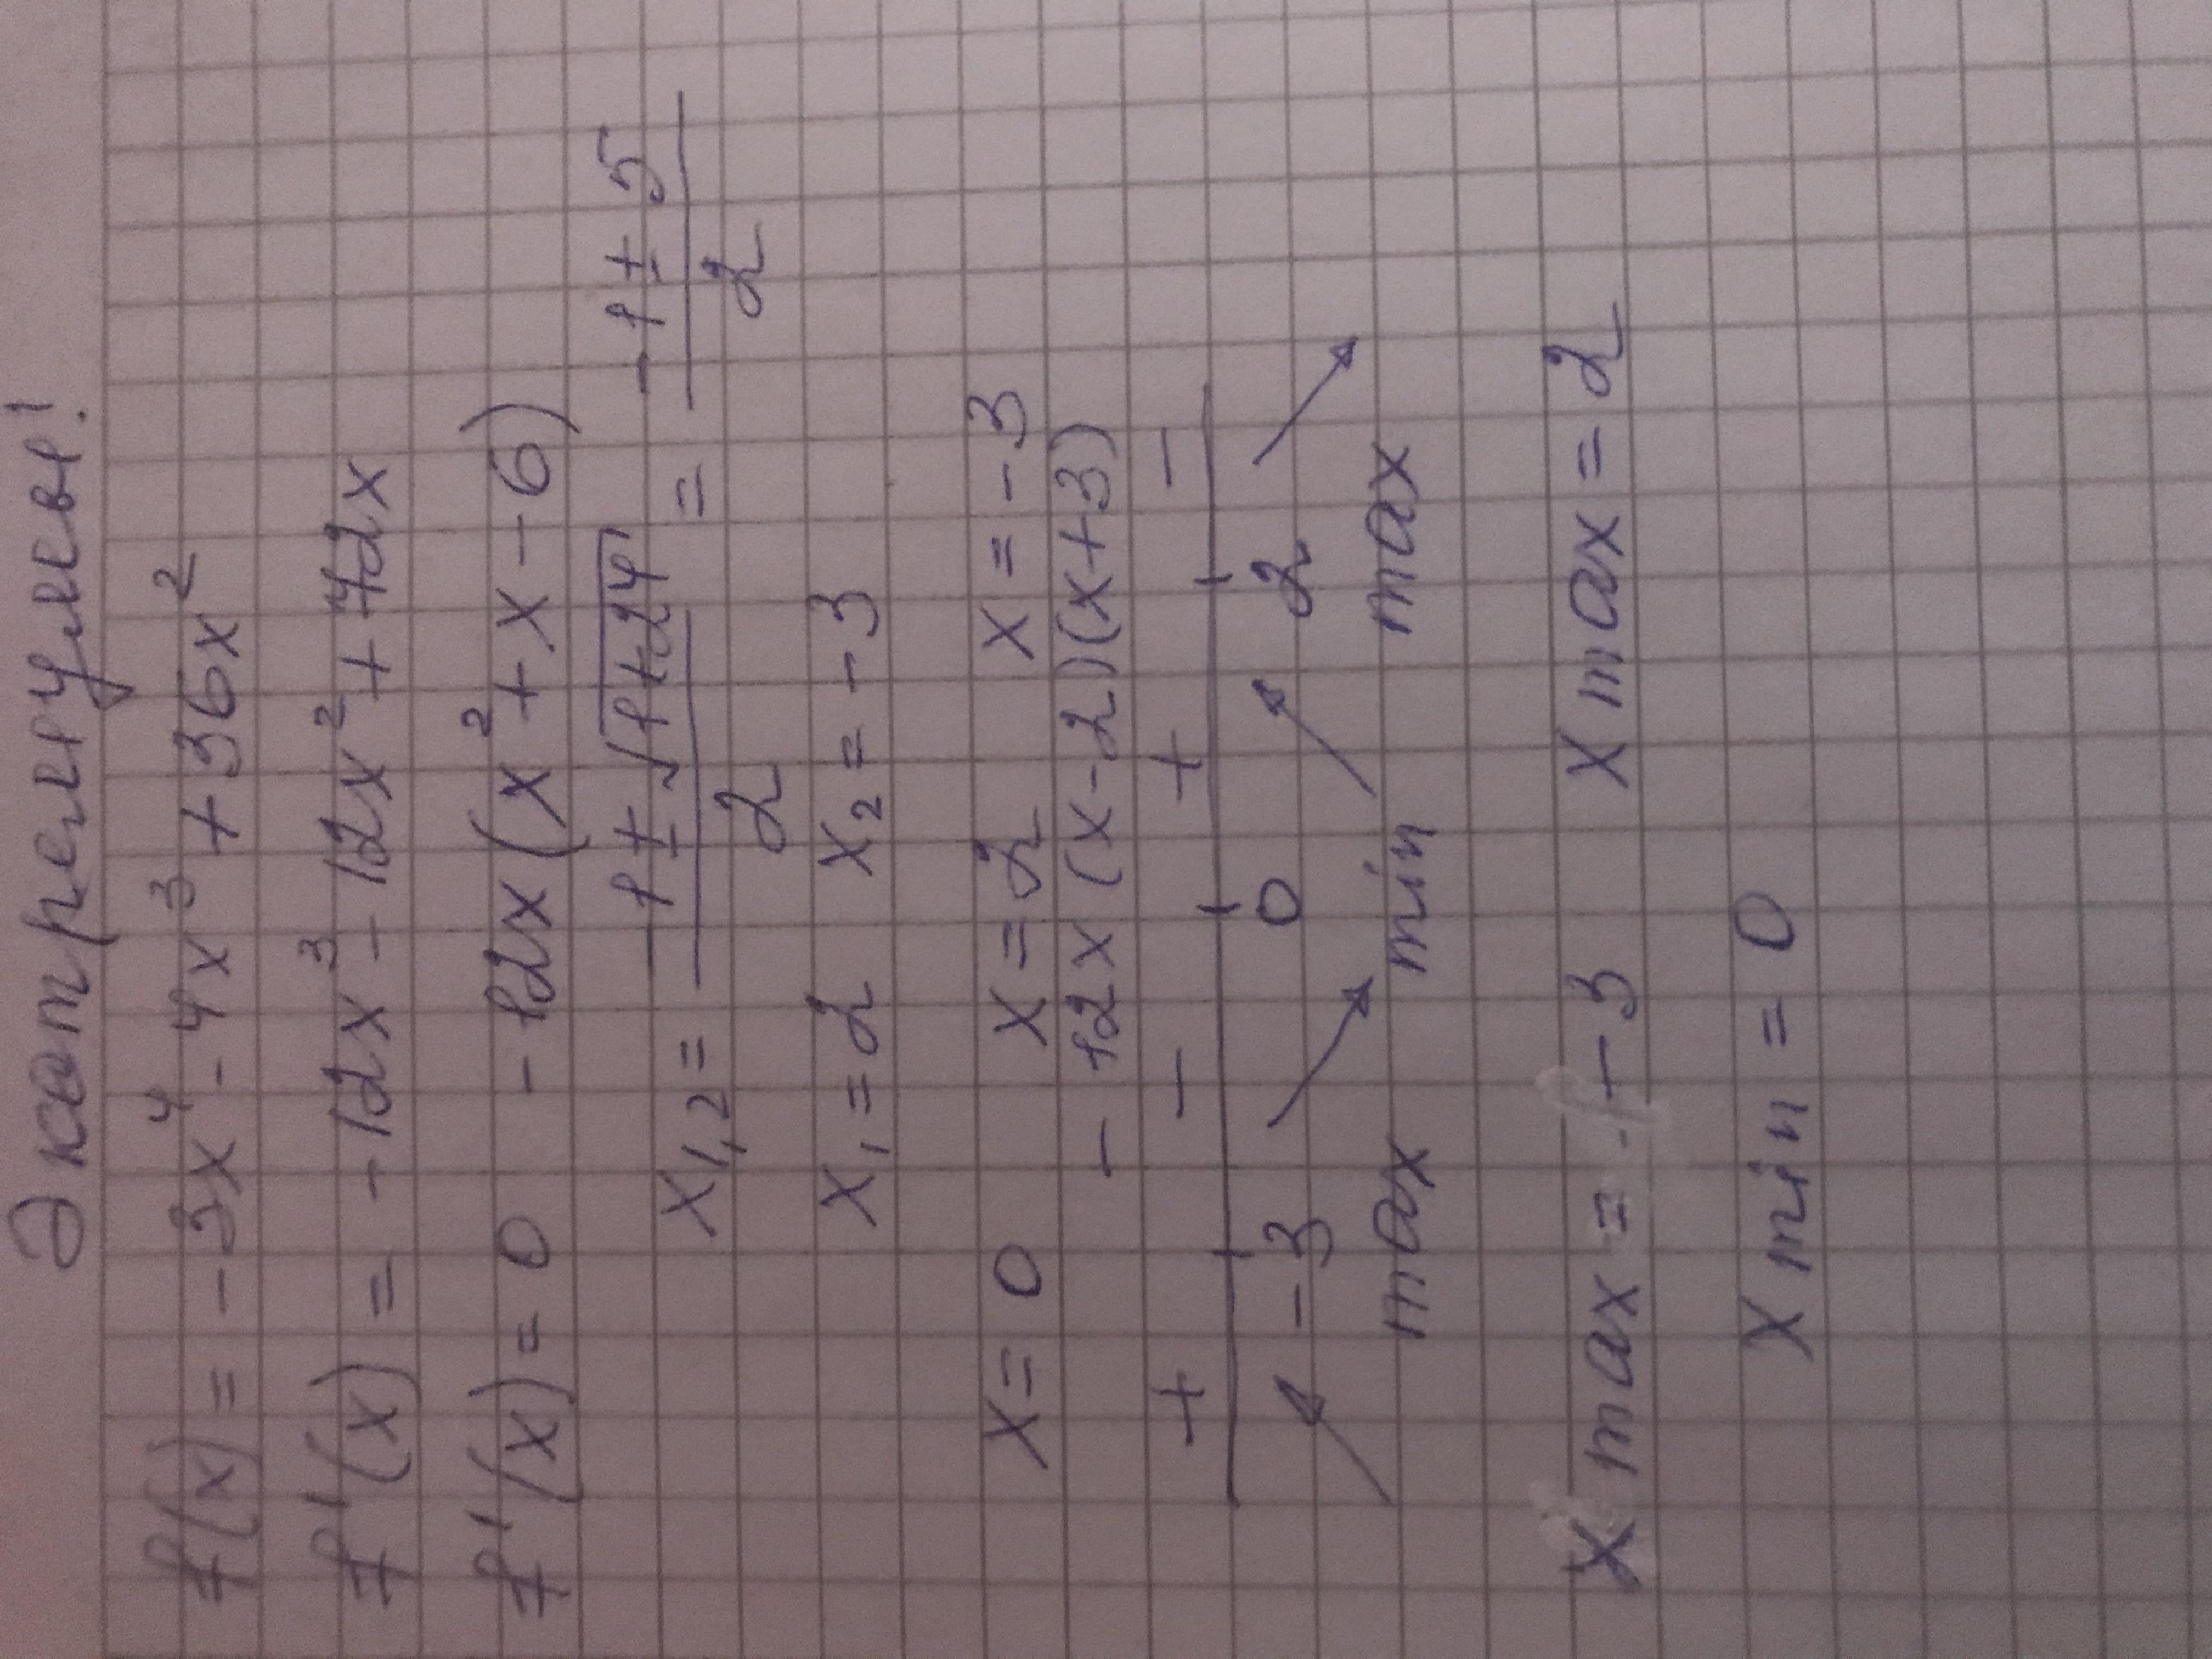 Экстремумы!
f(x) = -3x⁴ - 4x³ + 36x²
f'(x) = -12x³ - 12x² + 72x
f'(x) = 0 -12x(x² + x - 6)
x₁,₂ = (-1 ± √(1+24))/2 = (-1 ± 5)/2
x₁ = 2 x₂ = -3
x = 0 x = 2 x = -3
-12x(x-2)(x+3)
+ - + -
-3 0 2
max min max
x max = -3 x max = 2
x min = 0